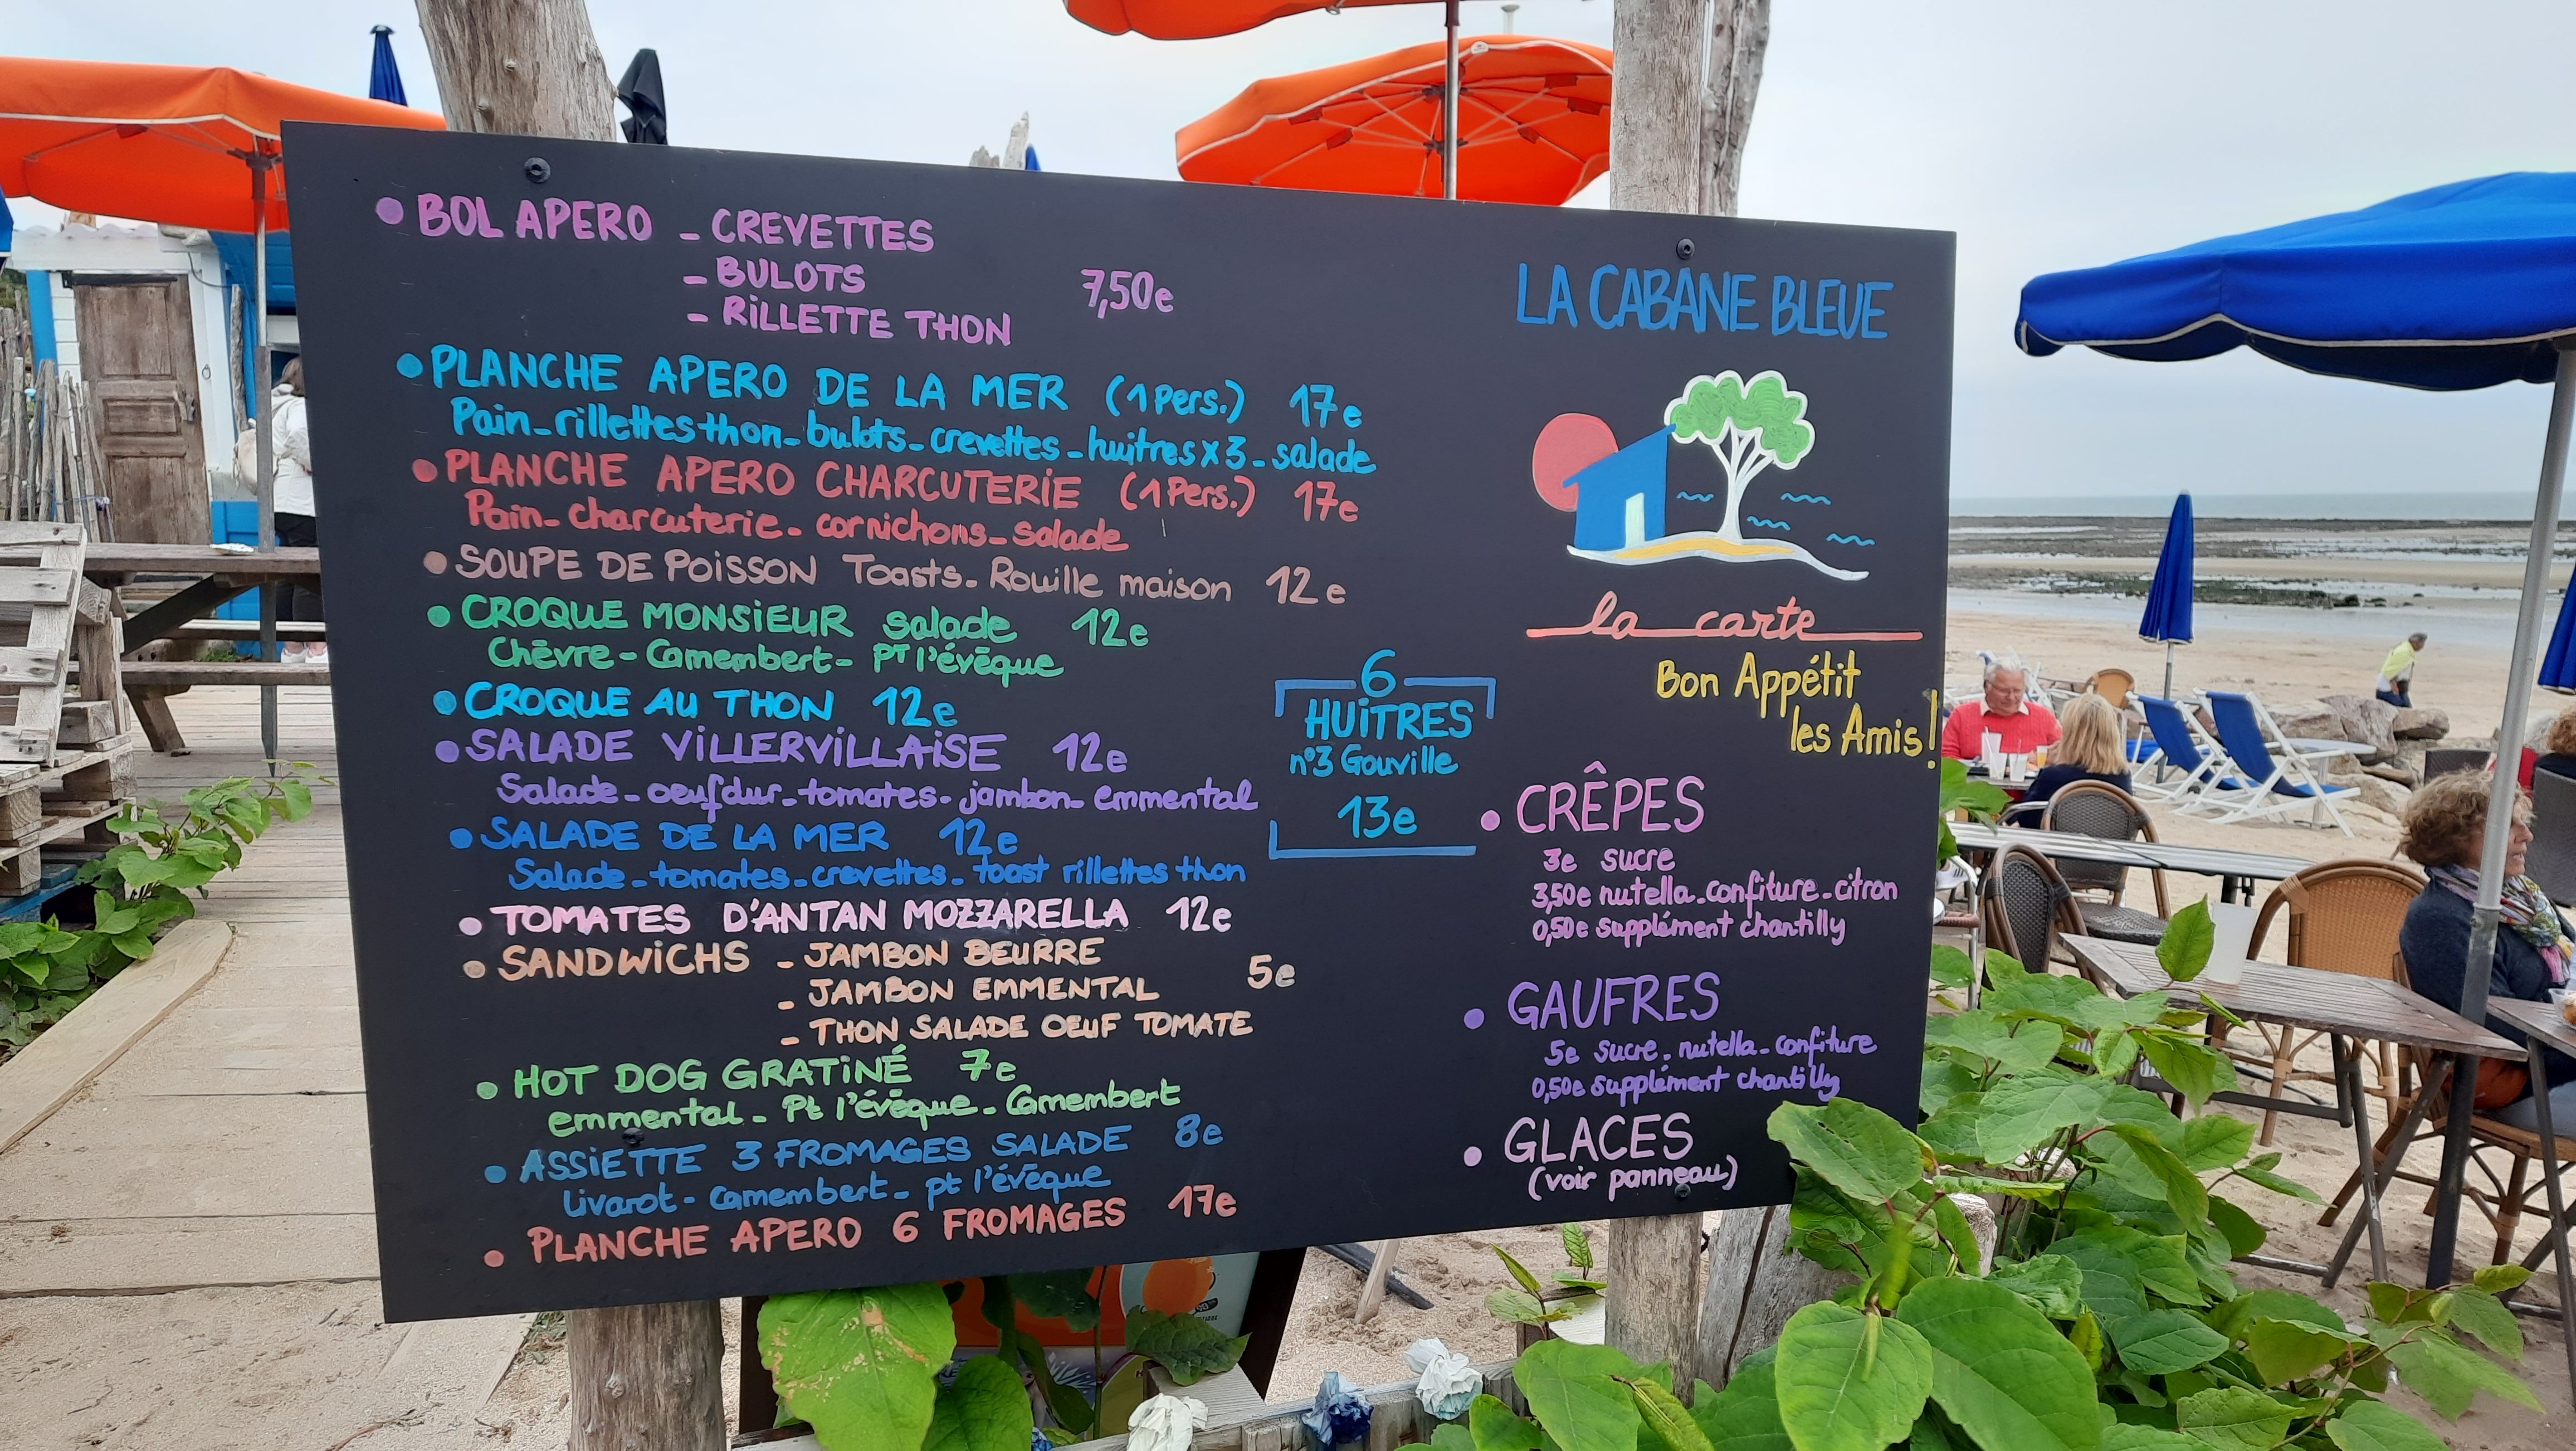 • BOL APERO - CREVETTES
- BULOTS
- RILLETTE THON
7,50e
• PLANCHE APERO DE LA MER (1 Pers.) 17e
Pain-rillettes thon-bulots-crevettes-huitres x 3-salade
• PLANCHE APERO CHARCUTERIE (1 Pers.) 17e
Pain-charcuterie-cornichons-salade
• SOUPE DE POISSON Toasts-Rouille maison 12e
• CROQUE MONSIEUR salade 12e
Chèvre-Camembert-PT l'évêque
• CROQUE AU THON 12e
• SALADE VILLERVILLAISE 12e
Salade-oeuf dur-tomates-jambon-emmental
• SALADE DE LA MER 12e
Salade-tomates-crevettes-toast rillettes thon
• TOMATES D'ANTAN MOZZARELLA 12e
• SANDWICHS - JAMBON BEURRE
- JAMBON EMMENTAL
- THON SALADE OEUF TOMATE
5e
• HOT DOG GRATINÉ 7e
emmental-Pt l'évêque-Camembert
• ASSIETTE 3 FROMAGES SALADE 8e
Livarot-camembert-pt l'évêque
• PLANCHE APERO 6 FROMAGES 17e
6
HUITRES
n°3 Gouville
13e
LA CABANE BLEUE
la carte
Bon Appétit
les Amis!
• CRÊPES
3e sucre
3,50e nutella-confiture-citron
0,50e supplément chantilly
• GAUFRES
5e sucre-nutella-confiture
0,50e supplément chantilly
• GLACES
(voir panneau)